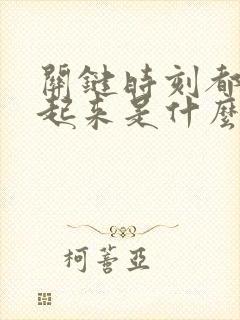 關鍵時刻都
起來是什麼
柯蓍亞